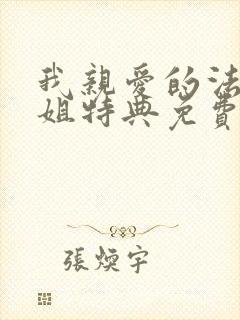 我親愛的法
姐特典免費
張煥宇